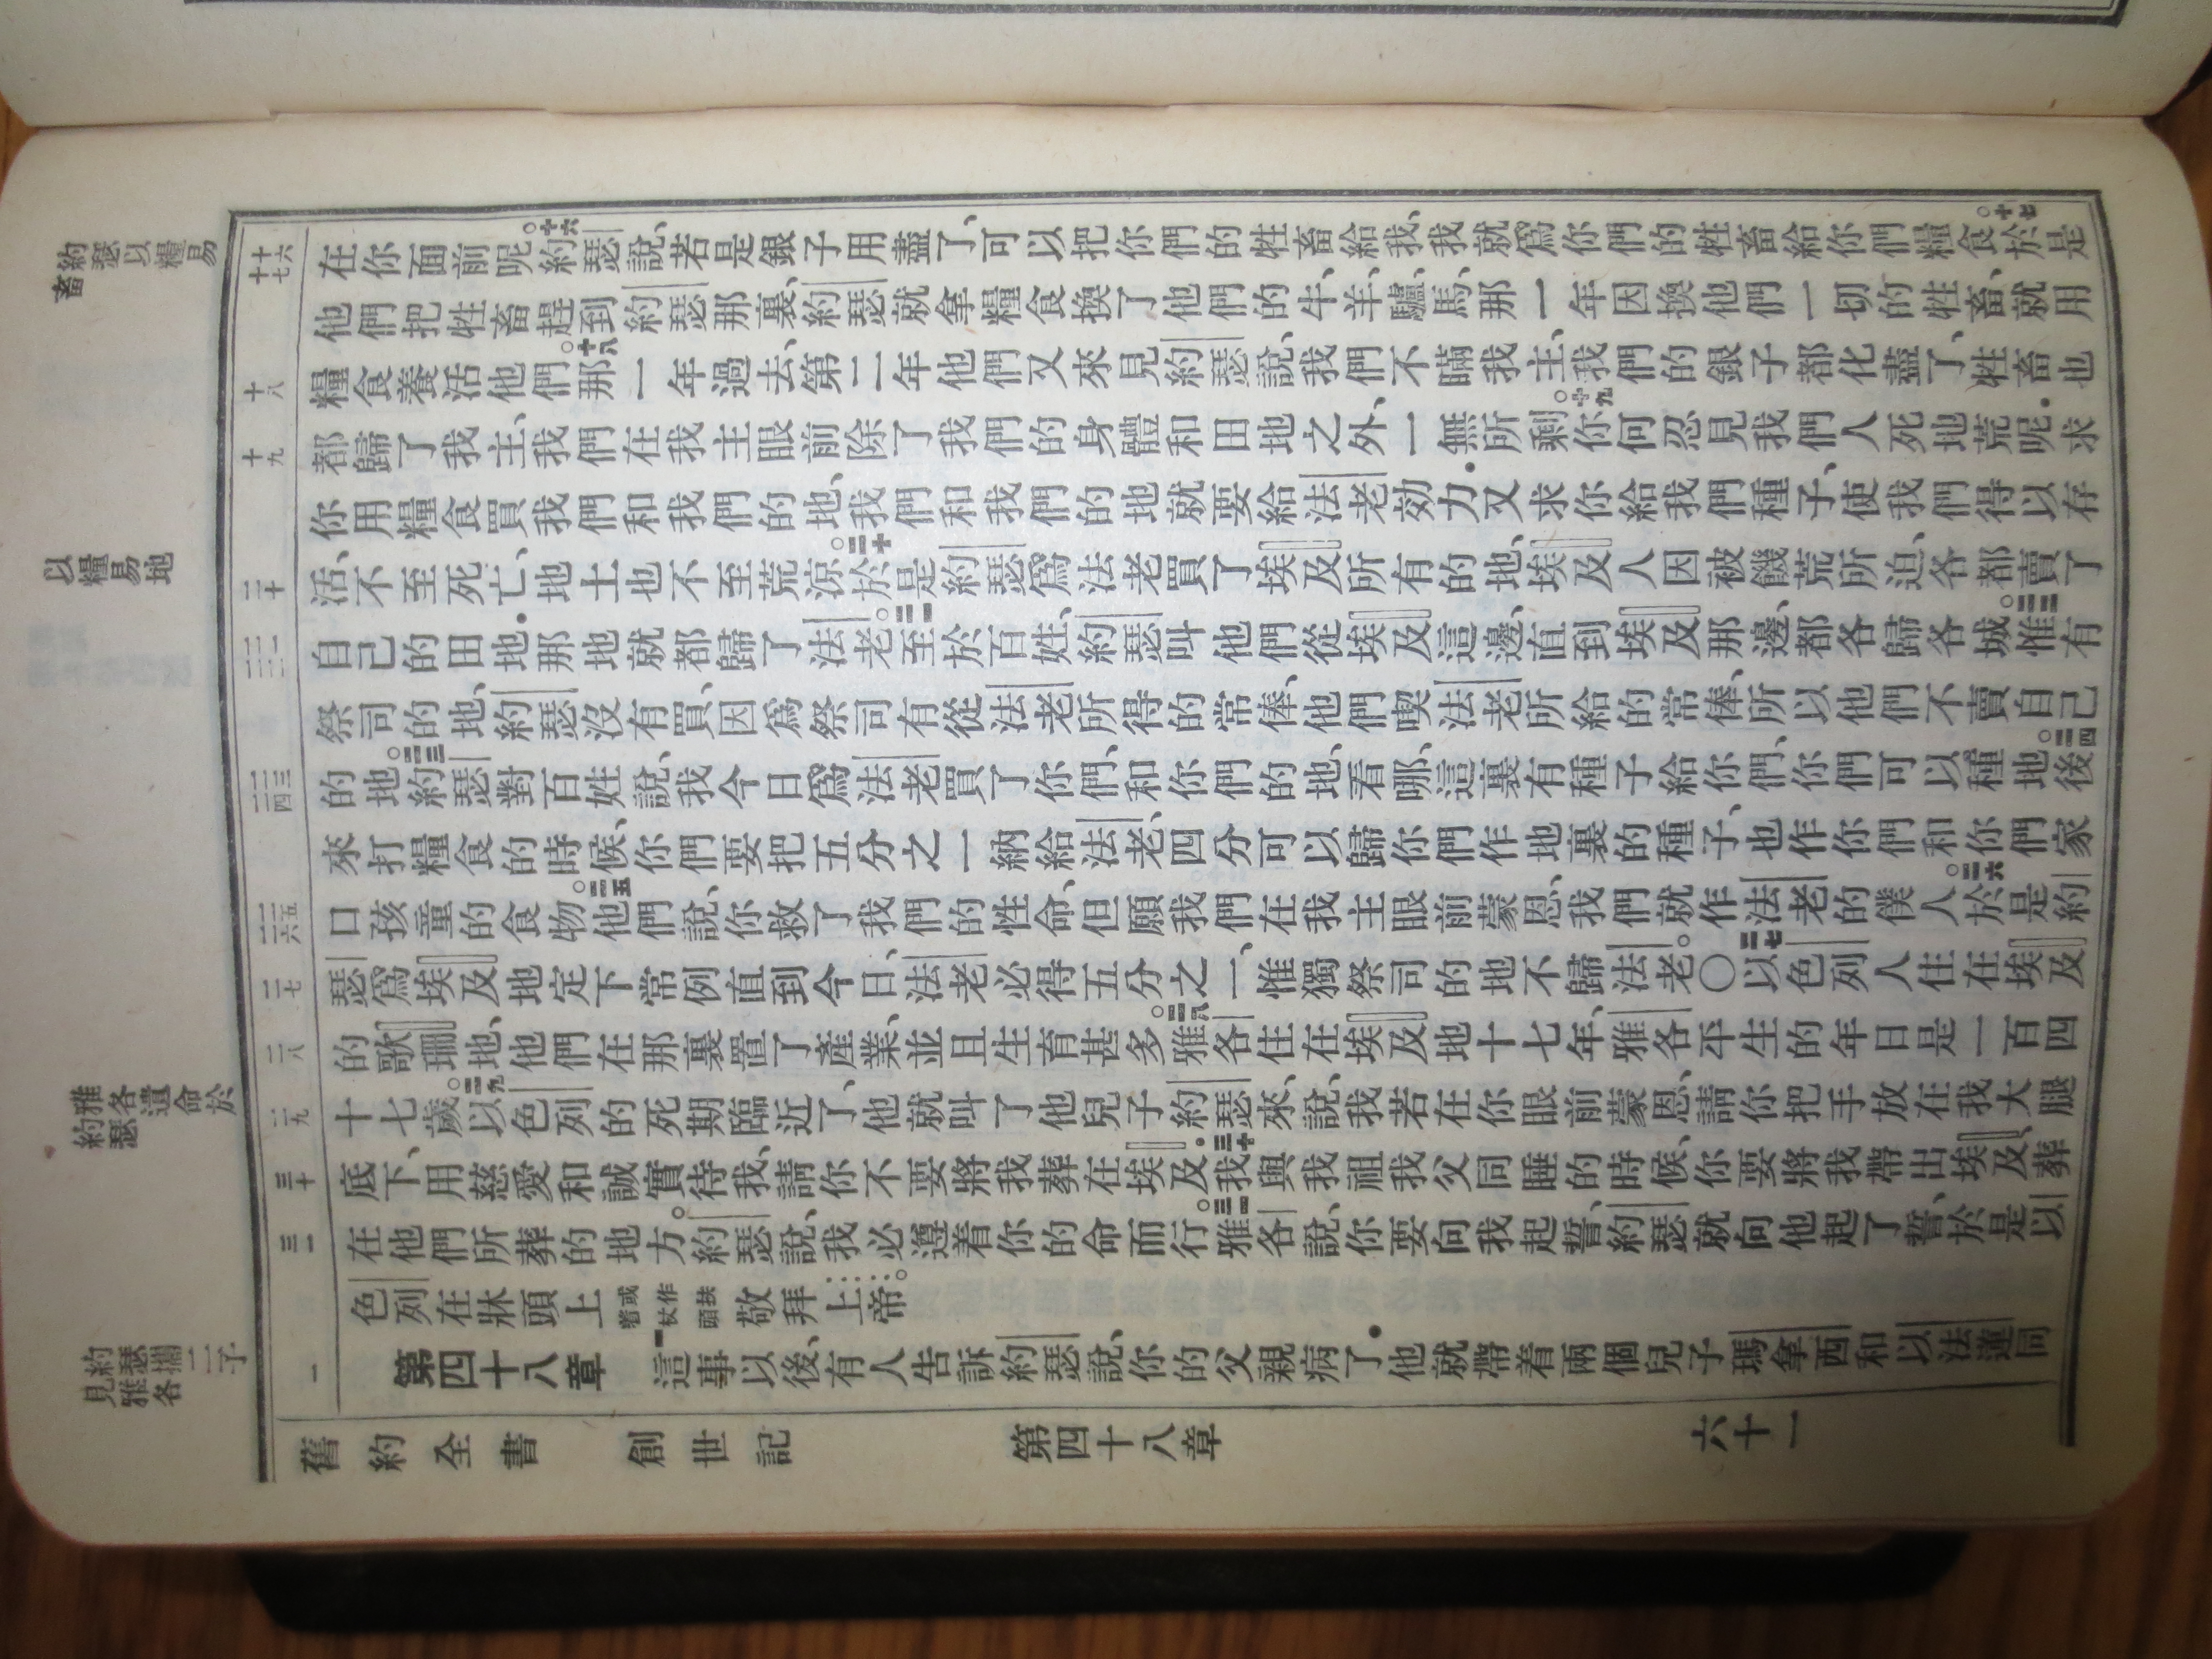 約瑟以糧易
畜
以糧易地
雅各遺命於
約瑟
約瑟攜二子
見雅各
十六
十七
十八
十九
二十
二一
二二
二三
二四
二五
二六
二七
二八
二九
三十
三一
一
在你面前呢。十六約瑟說、若是銀子用盡了、可以把你們的牲畜給我、我就爲你們的牲畜給你們糧食。十七於是
他們把牲畜趕到約瑟那裏、約瑟就拿糧食換了他們的牛、羊、驢、馬、那一年因換他們一切的牲畜、就用
糧食養活他們。十八那一年過去、第二年他們又來見約瑟說、我們不瞞我主、我們的銀子都化盡了、牲畜也
都歸了我主、我們在我主眼前除了我們的身體和田地之外、一無所剩。十九你何忍見我們人死地荒呢．求
你用糧食買我們和我們的地、我們和我們的地就要給法老効力．又求你給我們種子、使我們得以存
活、不至死亡、地土也不至荒涼。二十於是約瑟爲法老買了埃及所有的地、埃及人因被饑荒所迫、各都賣了
自己的田地．那地就都歸了法老。二一至於百姓、約瑟叫他們從埃及這邊、直到埃及那邊、都各歸各城。二二惟有
祭司的地、約瑟沒有買、因爲祭司有從法老所得的常俸、他們喫法老所給的常俸、所以他們不賣自己
的地。二三約瑟對百姓說、我今日爲法老買了你們、和你們的地、看哪、這裏有種子給你們、你們可以種地。二四後
來打糧食的時候、你們要把五分之一納給法老、四分可以歸你們作地裏的種子、也作你們和你們家
口孩童的食物。二五他們說、你救了我們的性命、但願我們在我主眼前蒙恩、我們就作法老的僕人。二六於是約
瑟爲埃及地定下常例直到今日、法老必得五分之一、惟獨祭司的地不歸法老。〇二七以色列人住在埃及
的歌珊地、他們在那裏置了產業、並且生育甚多。二八雅各住在埃及地十七年、雅各平生的年日是一百四
十七歲。二九以色列的死期臨近了、他就叫了他兒子約瑟來、說、我若在你眼前蒙恩、請你把手放在我大腿
底下、用慈愛和誠實待我、請你不要將我葬在埃及．三十我與我祖我父同睡的時候、你要將我帶出埃及、葬
在他們所葬的地方。約瑟說、我必遵着你的命而行。三一雅各說、你要向我起誓、約瑟就向他起了誓、於是以
色列在牀頭上或作扶着杖頭敬拜上帝。
第四十八章　一這事以後、有人告訴約瑟說、你的父親病了．他就帶着兩個兒子瑪拿西和以法蓮同
舊約全書　創世記　第四十八章　六十一